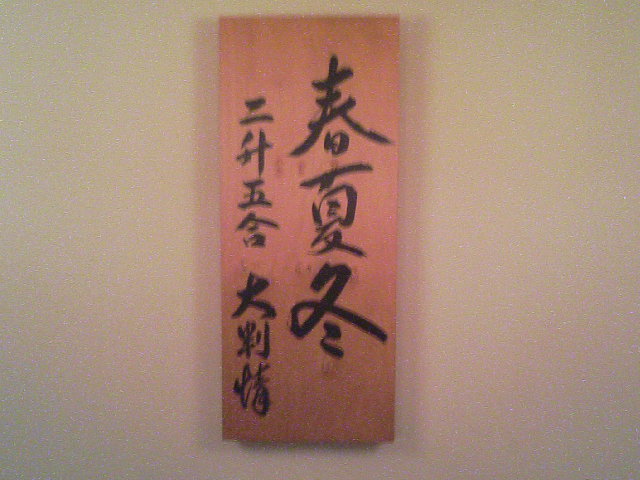 春夏冬
二升五合
大判情